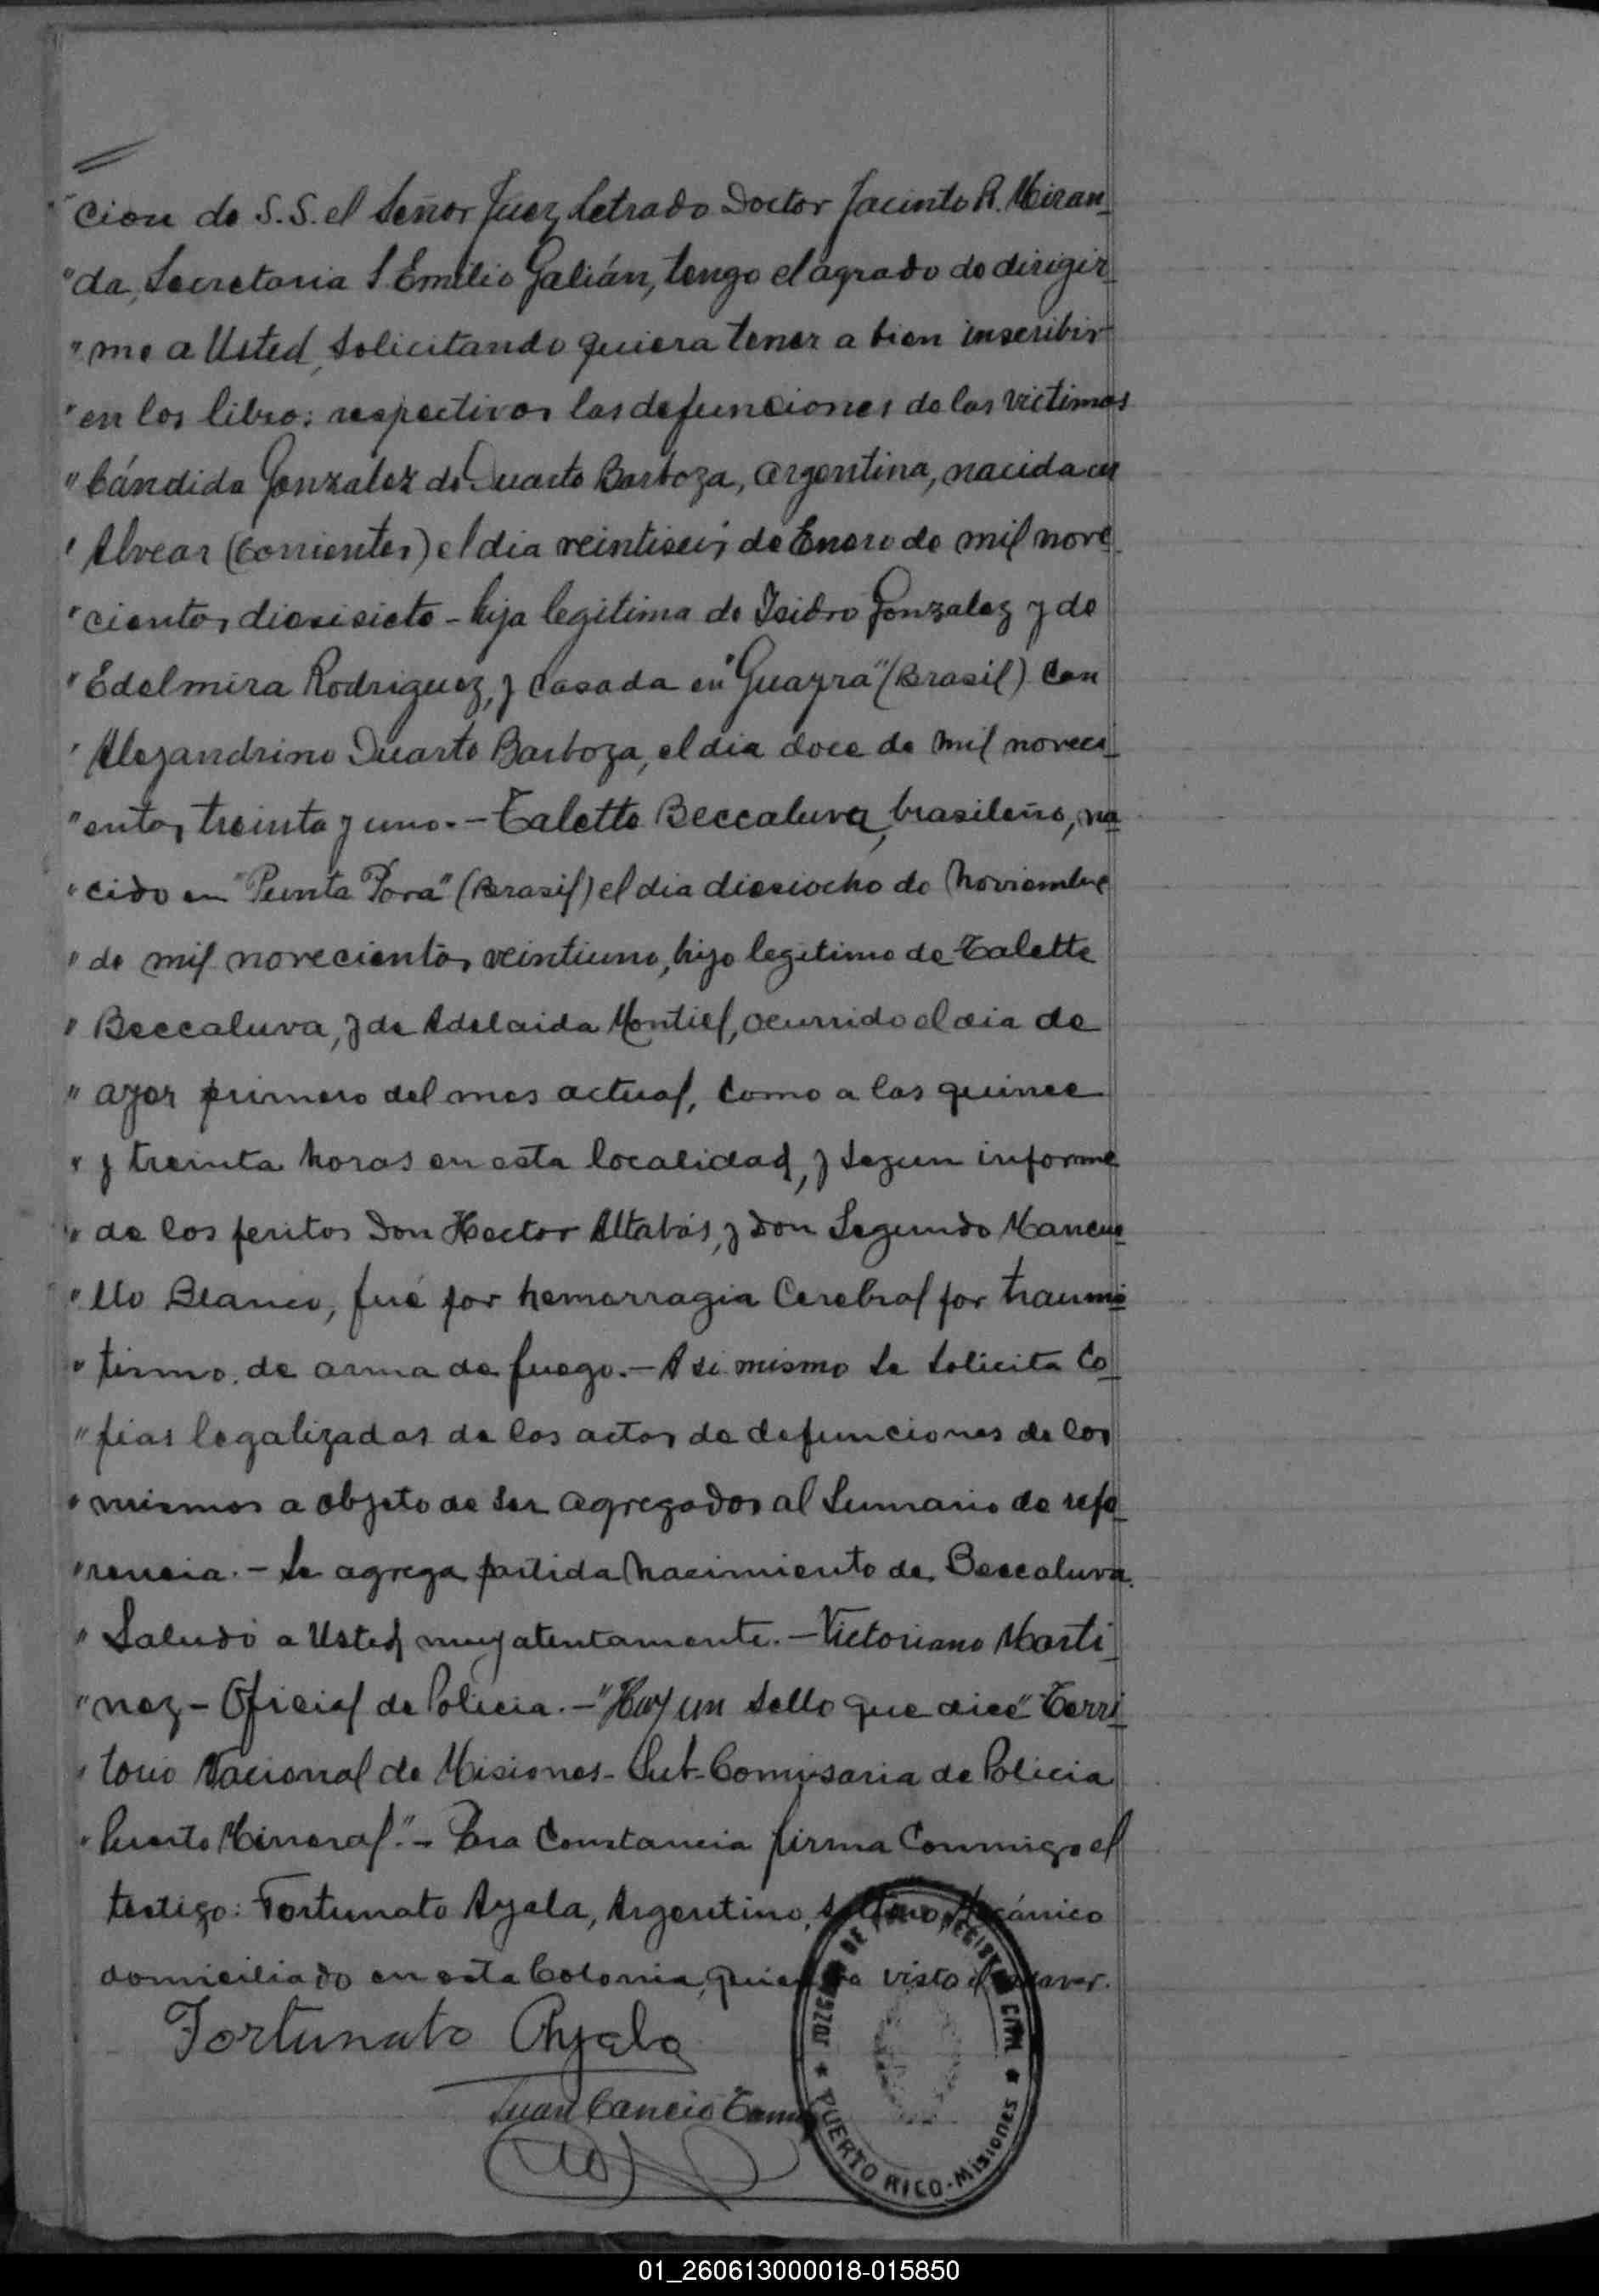 "cion de S.S. el Señor Juez Letrado Doctor Jacinto R. Miran_
"da, Secretaria S. Emilio Galián, tengo el agrado de dirigir_
"me a Usted, solicitando quiera tener a bien inscribir
"en los libros respectivos las defunciones de las victimas
"Cándida Gonzalez de Duarte Barboza, argentina, nacida en
"Alvear (Corrientes) el dia veintiseis de Enero de mil nove_
"cientos diesisiete - hija legitima de Isidro Gonzalez y de
"Edelmira Rodriguez, y casada en "Guayra" (Brasil) con
"Alejandrino Duarte Barboza, el dia doce de mil noveci_
"entos treinta y uno. - Taletto Beccaluva, brasileño, na_
"cido en "Punta Porá" (Brasil) el dia diesiocho de Noviembre
"de mil novecientos veintiuno, hijo legitimo de Talette
"Beccaluva, y de Adelaida Montiel, ocurrido el dia de
"ayer primero del mes actual, como a las quince
"y treinta horas en esta localidad, y segun informe
"de los peritos Don Hector Altabás, y don Segundo Mancue_
"llo Blanco, fué por hemorragia Cerebral por trauma_
"tismo de arma de fuego. - Asi mismo se solicita co_
"pias legalizadas de las actas de defunciones de los
"mismos a objeto de ser agregados al Sumario de refe_
"rencia. - Se agrega partida nacimiento de Beccaluva.
"Saludo a Usted muy atentamente. - Victoriano Marti_
"nez - Oficial de Policia. - "Hay un sello que dice" Terri_
"torio Nacional de Misiones - Sub-Comisaria de Policia
"Puerto Mineral". - Para Constancia firma Conmigo el
testigo: Fortunato Ayala, Argentino, Soltero, Mecánico
domiciliado en esta Colonia, quien ha visto el cadaver.
Fortunato Ayala
Juan Cancio
JUZGADO DE PAZ Y REGISTRO CIVIL
PUERTO RICO - Misiones
01_260613000018-015850